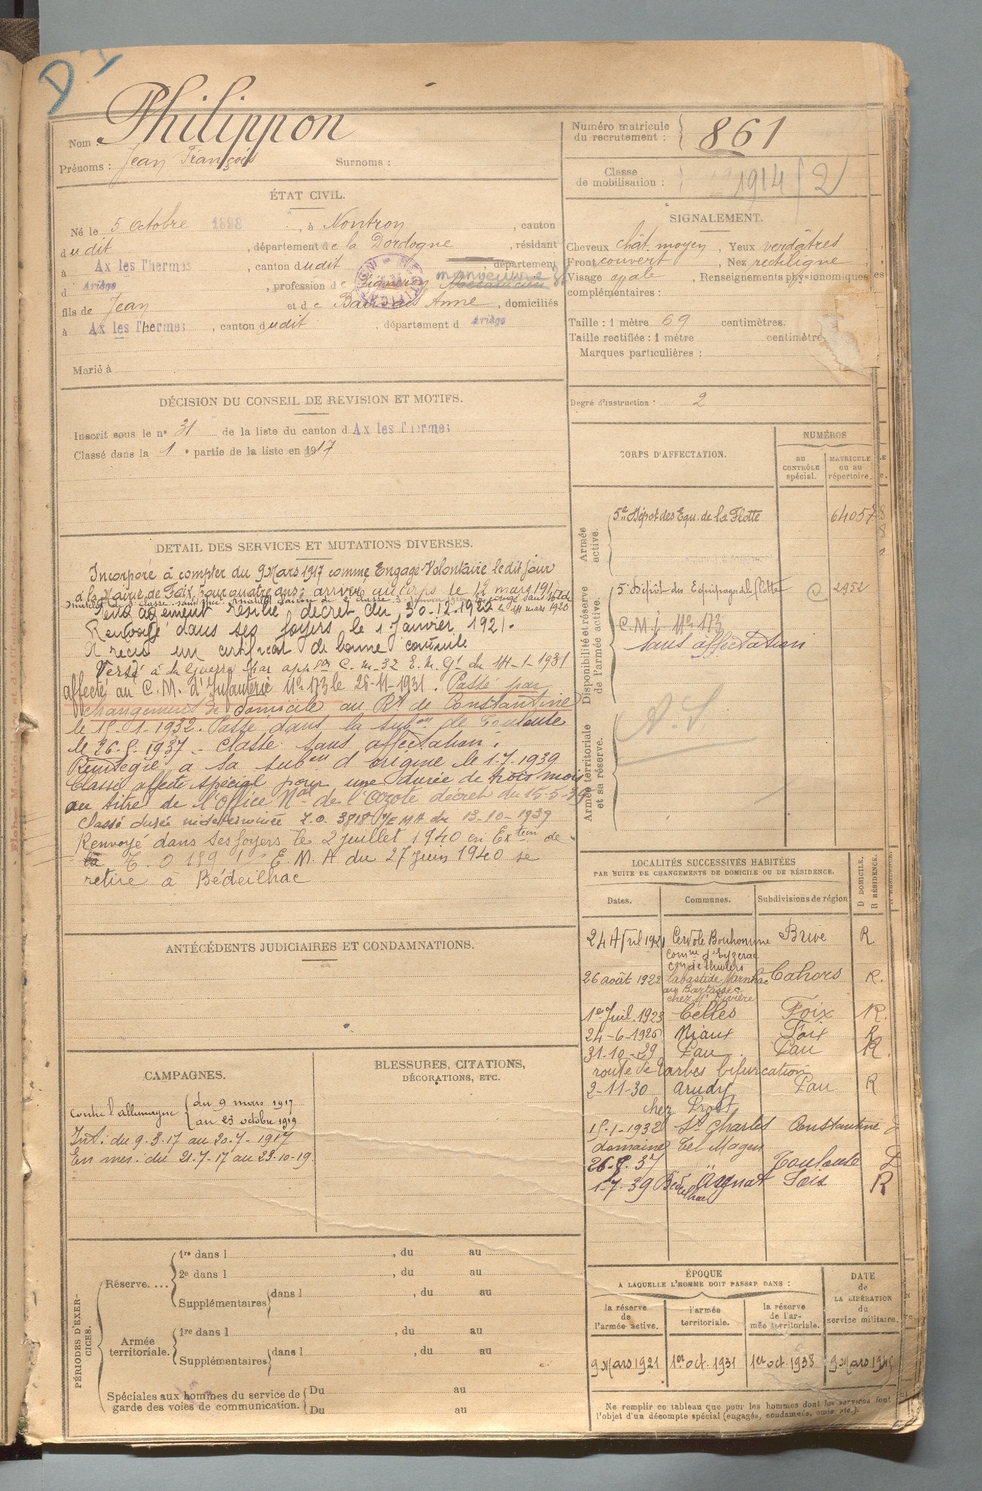 D I
Nom : Philippon
Prénoms : Jean François Surnoms :
Numéro matricule du recrutement : 861
Classe de mobilisation : 1914 / 2
ÉTAT CIVIL.
Né le 5 Octobre 1898, à Nontron, canton
dudit, département de la Dordogne, résidant
à Ax les Thermes, canton dudit, département
d Ariège, profession de manoeuvre
fils de Jean et de Anne, domiciliés
à Ax les Thermes, canton dudit, département d Ariège
Marié à
SIGNALEMENT.
Cheveux chât. moyen, Yeux verdâtres
Front couvert, Nez rectiligne
Visage ovale, Renseignements physionomiques
complémentaires :
Taille : 1 mètre 69 centimètres.
Taille rectifiée : 1 mètre centimètre
Marques particulières :
Degré d'instruction : 2
DÉCISION DU CONSEIL DE REVISION ET MOTIFS.
Inscrit sous le n° 31 de la liste du canton d Ax les Thermes
Classé dans la 1e partie de la liste en 1917
CORPS D'AFFECTATION.
NUMÉROS
AU CONTRÔLE SPÉCIAL.
MATRICULE OU AU RÉPERTOIRE.
Armée active.
5e Dépôt des Equ. de la Flotte 64057
Disponibilité et réserve de l'armée active.
5e Dépôt des Equipages de la Flotte C 2952
C.M.I. No 173
Sans affectation
Armée territoriale et sa réserve.
A. S.
DETAIL DES SERVICES ET MUTATIONS DIVERSES.
Incorporé à compter du 9 Mars 1917 comme Engagé Volontaire le dit jour
à la Mairie de Foix, pour quatre ans; arrivé au Corps le 12 mars 1917
décret du 20-12-1920
Renvoyé dans ses foyers le 1 Janvier 1921.
A reçu un certificat de bonne conduite
Versé à la Guerre par appl. C. M. 32 E. M. Gl du 14-1-1931
affecté au C. M. d'Infanterie No 173 le 28-11-1931. Passé par
changement de domicile au Rt de Constantine
le 15-01-1932. Passé dans la subon de Toulouse
le 26.8.1937 - Classé sans affectation.
Réintegré à sa subon d'origine le 1.7.1939
Classé affecté spécial pour une durée de trois mois
au titre de l'Office Nal de l'Azote décret du 15-5-39
Classé durée indéterminée E.M.A du 13-10-1939
Renvoyé dans ses foyers le 2 juillet 1940 en Extion de
la E. M. A. du 27 juin 1940 se
retire à Bédeilhac
ANTÉCÉDENTS JUDICIAIRES ET CONDAMNATIONS.
LOCALITÉS SUCCESSIVES HABITÉES
PAR SUITE DE CHANGEMENTS DE DOMICILE OU DE RÉSIDENCE.
Dates. Communes. Subdivisions de région
D DOMICILE, R RÉSIDENCE.
24 Avril 1921 Brive R
26 août 1922 Labastide Marnhac Cahors R.
chez Mr Rivière
1er Juil. 1923 Celles Foix R.
24-6-1926 Niaux Foix R
31-10-29 Pau Pau R.
route de Tarbes bifurcation
2-11-30 Arudy Pau R
chez Prost
15-1-1932 St Charles Constantine
domaine
26-8-37 Toulouse D
1-7-39 Bédeilhac Aynat Foix R
CAMPAGNES.
Contre l'Allemagne du 9 mars 1917
au 23 octobre 1919
Int. du 9.3.17 au 20.7.1917
En mer. du 21.7.17 au 23.10.19.
BLESSURES, CITATIONS,
DÉCORATIONS, ETC.
PÉRIODES D'EXERCICES.
Réserve....
1re dans l , du au
2e dans l , du au
Supplémentaires dans l , du au
Armée territoriale.
1re dans l , du au
Supplémentaires dans l , du au
Spéciales aux hommes du service de garde des voies de communication.
Du au
Du au
ÉPOQUE
A LAQUELLE L'HOMME DOIT PASSER DANS :
la réserve de l'armée active.
l'armée territoriale.
la réserve de l'armée territoriale.
DATE de LA LIBÉRATION du service militaire.
9 Mars 1921 1er oct. 1931 1er oct. 1938 9 Mars
Ne remplir ce tableau que pour les hommes dont les services font
l'objet d'un décompte spécial (engagés, condamnés, omis, etc.).